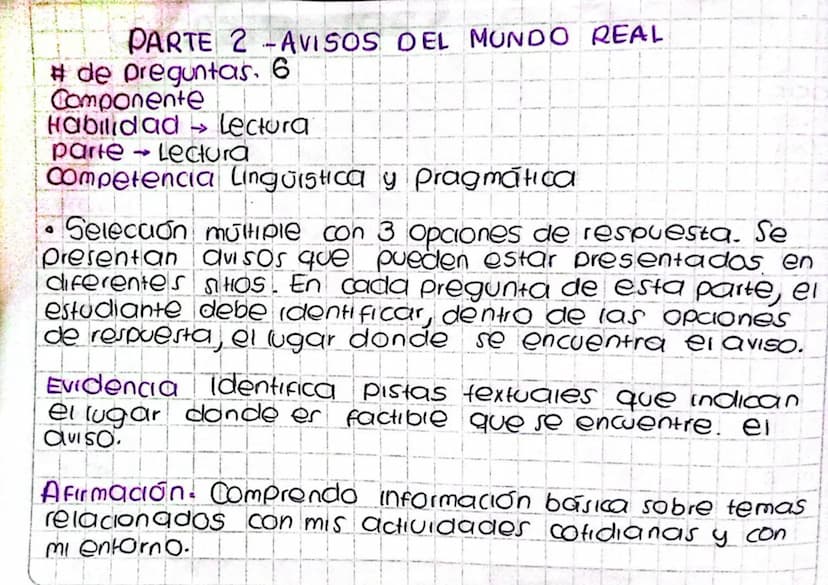 PARTE 2 - AVISOS DEL MUNDO REAL
# de preguntas. 6
Componente
Habilidad → Lectura
parte → Lectura
Competencia Lingüística y pragmática
• Selección múltiple con 3 opciones de respuesta. Se
presentan avisos que pueden estar presentados en
diferentes sitios. En cada pregunta de esta parte, el
estudiante debe identificar, dentro de las opciones
de respuesta, el lugar donde se encuentra el aviso.
Evidencia Identifica pistas textuales que indican
el lugar donde es factible que se encuentre. el
aviso.
Afirmación. Comprendo información básica sobre temas
relacionados con mis actividades cotidianas y con
mi entorno.